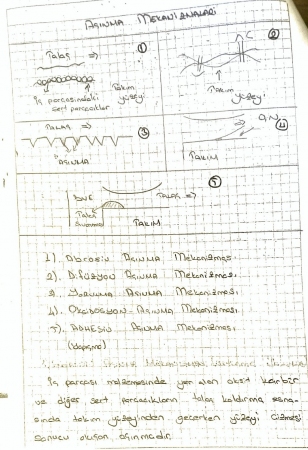 AŞINMA MEKANİZMALARI
Talaş ⇒ ①
İş parçasındaki
sert parçacıklar
Takım
yüzeyi
② C
Takım
yüzeyi
TALAŞ ⇒ ③
AŞINMA
O₂N₂ ④
TAKIM
⑤
BUE TALAŞ ⇒
Talaş
TAKIM
1). Abrasiv Aşınma Mekanizması
2) Difüzyon Aşınma Mekanizması
3. Yorulma Aşınma Mekanizması
4). Oksidasyon Aşınma Mekanizması
5). ADHESİV AŞınma Mekanizması
(Yapışma)
İş parçası malzemesinde yer alan oksit karbür
ve diğer sert parçacıkların talaş kaldırma esna-
sında takım yüzeyinden geçerken yüzeyi çizmesi
sonucu oluşan aşınmadır.